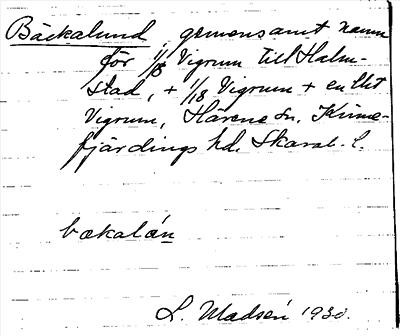 Bäckalund gemensamt namn
för 1/18 Vigrum till Halm-
stad, + 1/18 Vigrum + en lht
Vigrum, Härene sn, Kinne-
fjärdings hd. Skarab. l.
bækalán
L. Madsén 1930.